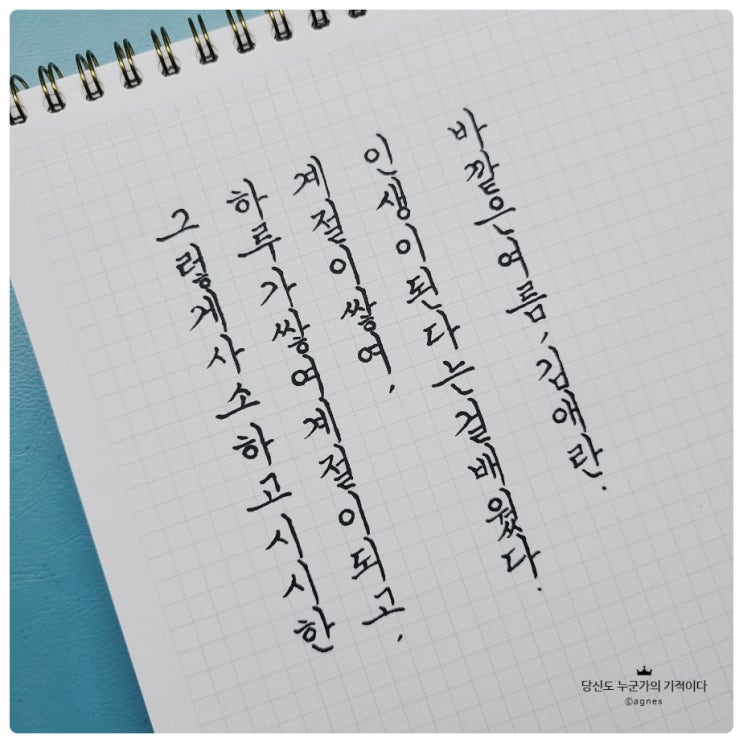 그렇게 사소하고 시시한
하루가 쌓여 계절이 되고,
계절이 쌓여,
인생이 된다는 걸 배웠다.
바깥은 여름, 김애란.
당신도 누군가의 기적이다
©agnes